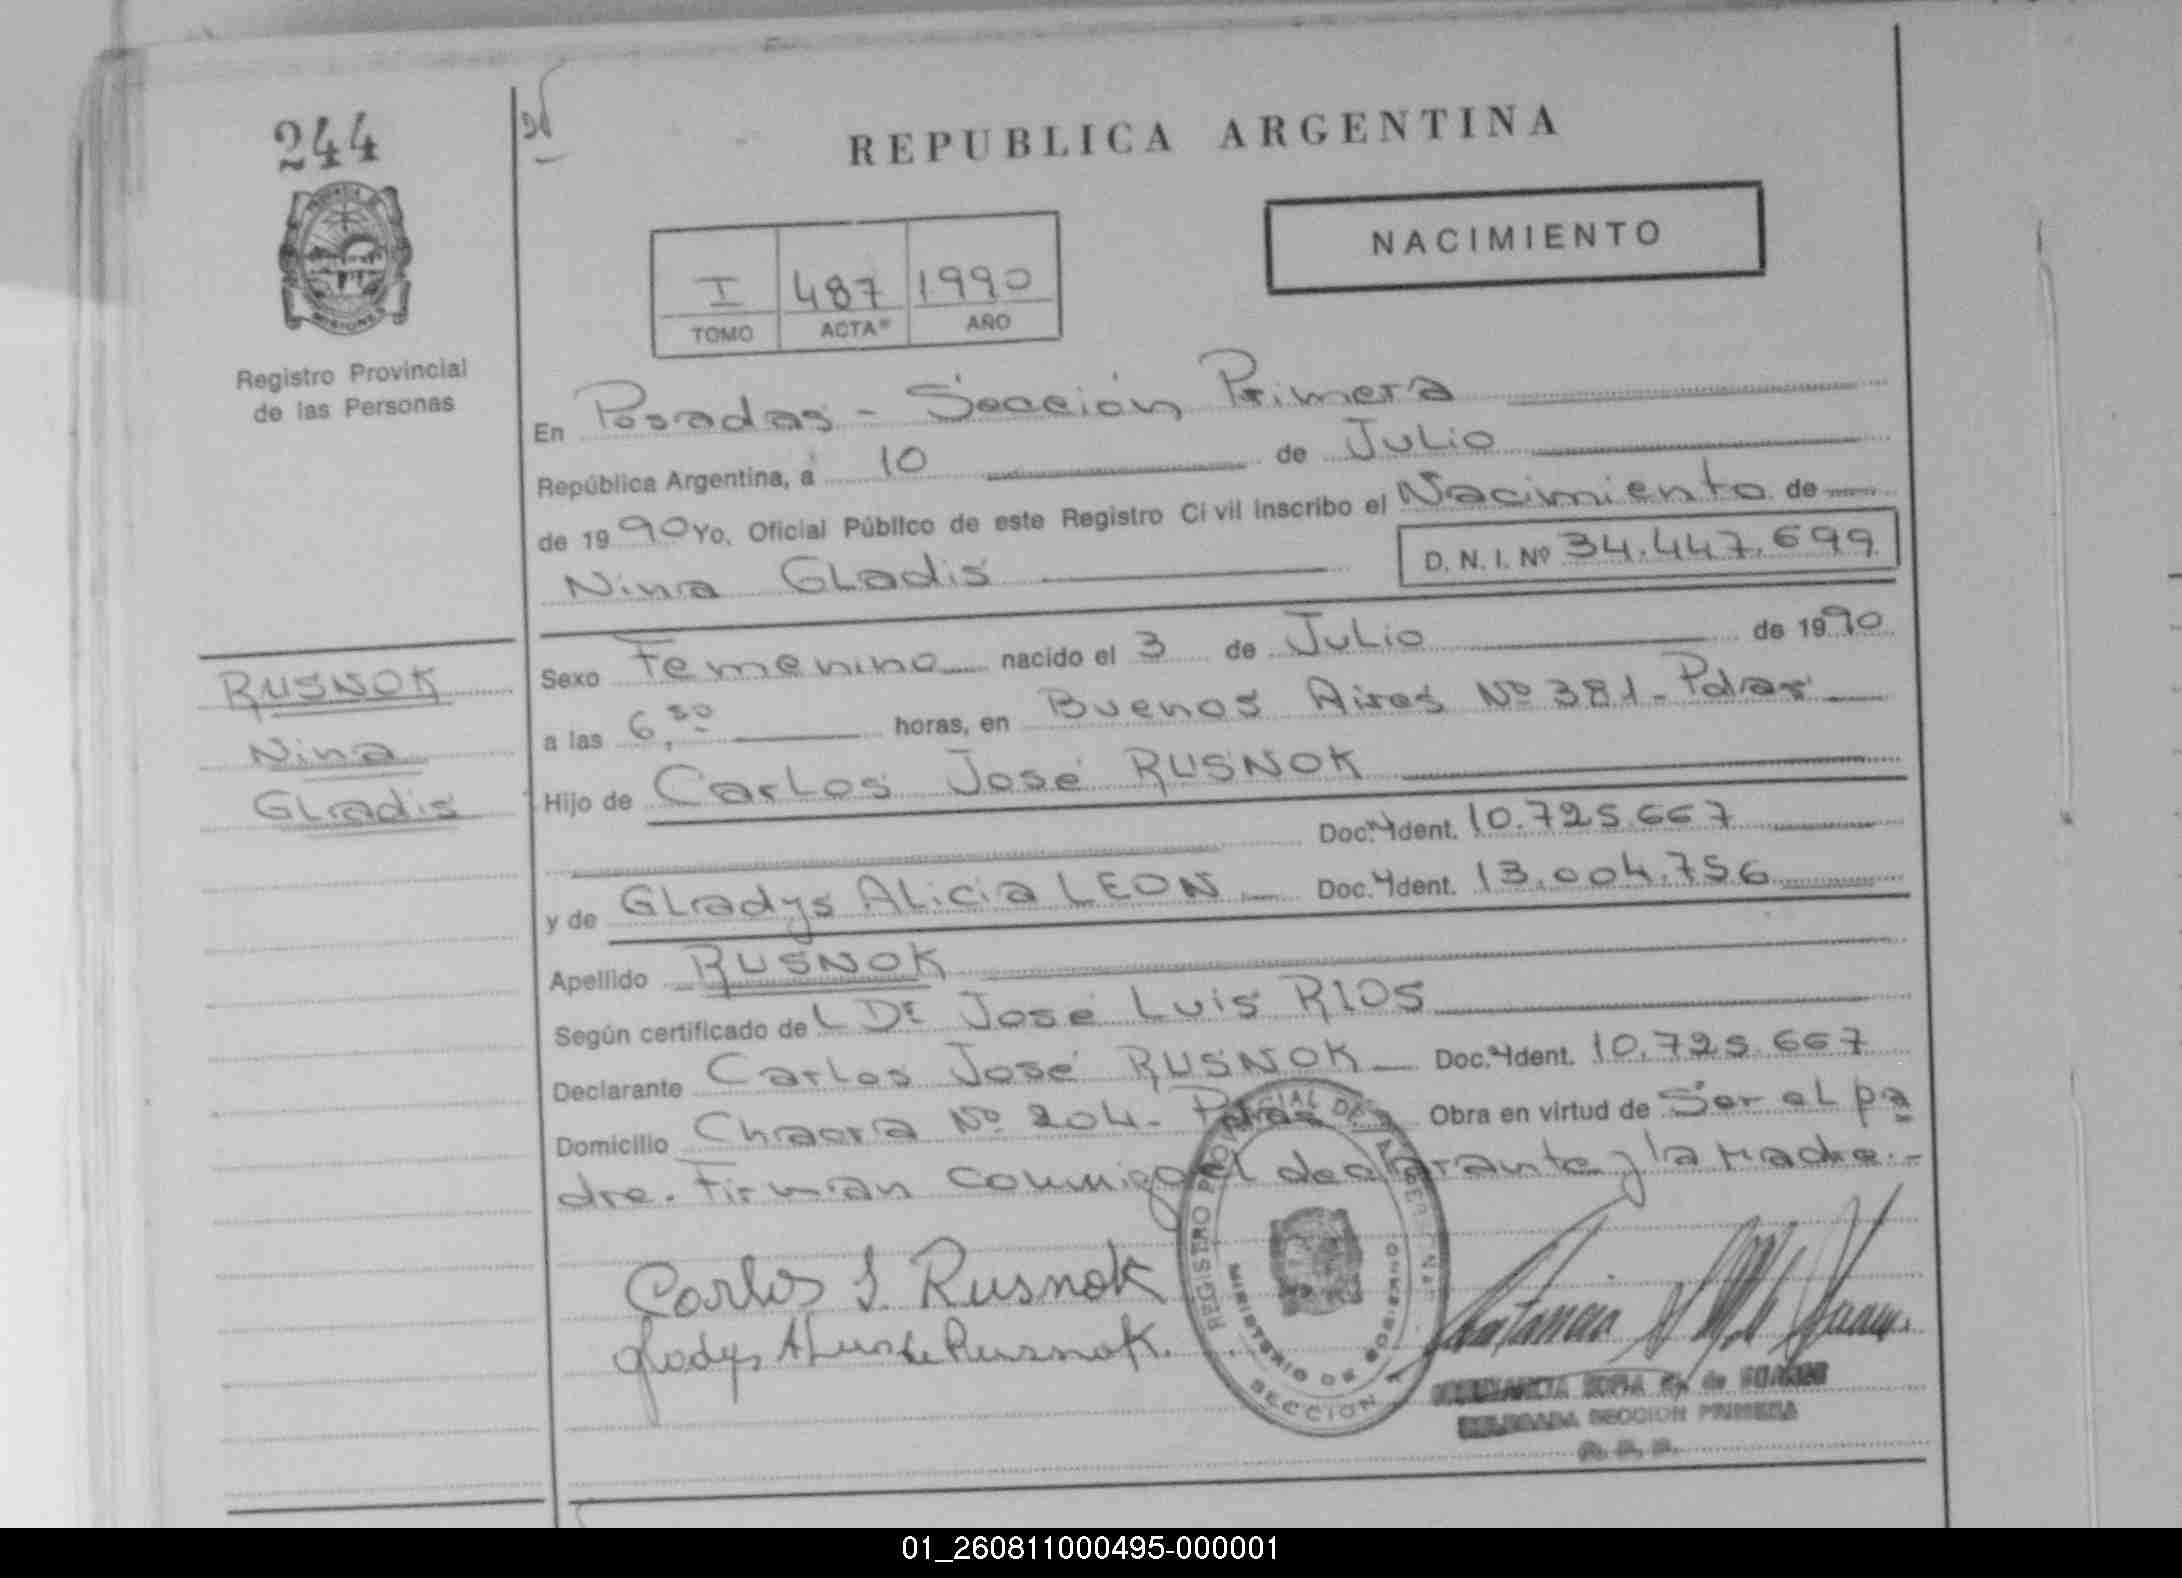 244
REPUBLICA ARGENTINA
NACIMIENTO
I 487 1990
TOMO ACTA Nº AÑO
MISIONES
Registro Provincial
de las Personas
En Posadas - Sección Primera
República Argentina, a 10 de Julio
de 1990 Yo, Oficial Público de este Registro Civil inscribo el Nacimiento de
Nina Gladis D. N. I. Nº 34.447.699
RUSNOK
Nina
Gladis
Sexo Femenino nacido el 3 de Julio de 1990
a las 6,30 horas, en Buenos Aires Nº 381 - Pdas
Hijo de Carlos José RUSNOK
Doc. Ident. 10.725.667
y de Gladys Alicia LEON Doc. Ident. 13.004.756
Apellido RUSNOK
Según certificado del Dr José Luis RIOS
Declarante Carlos José RUSNOK Doc. Ident. 10.725.667
Domicilio Chacra Nº 204 - Pdas Obra en virtud de Ser el pa
dre. Firman conmigo el declarante y la Madre.-
Carlos J. Rusnok
Gladys A Leon de Rusnok.
REGISTRO PROVINCIAL DE
MINISTERIO DE GOBIERNO
SECCION 1
SOFIA de
DELEGADA SECCION PRIMERA
R. P. P.
01_260811000495-000001